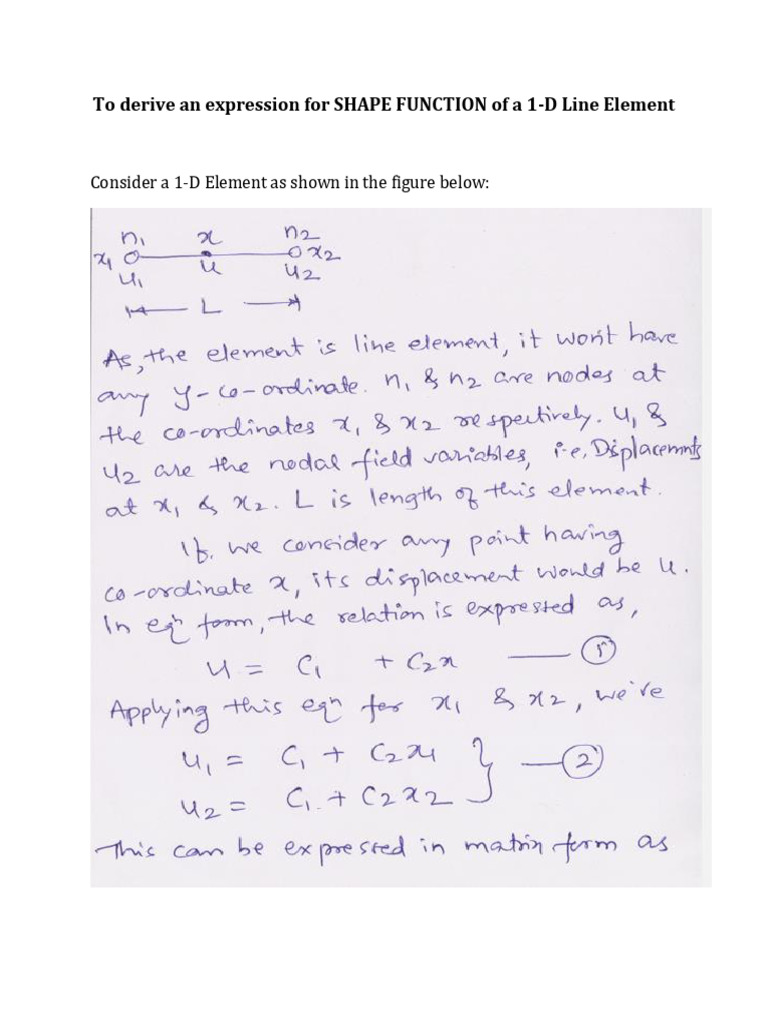 To derive an expression for SHAPE FUNCTION of a 1-D Line Element
Consider a 1-D Element as shown in the figure below:
n₁ x n₂
x₁ x₂
u₁ u u₂
L
As, the element is line element, it won't have
any y-co-ordinate. n₁ & n₂ are nodes at
the co-ordinates x₁ & x₂ respectively. u₁ &
u₂ are the nodal field variables, i.e, Displacemnts
at x₁ & x₂. L is length of this element.
If, we consider any point having
co-ordinate x, its displacement would be u.
In eqⁿ form, the relation is expressed as,
u = C₁ + C₂x — ①
Applying this eqⁿ for x₁ & x₂, we've
u₁ = C₁ + C₂x₁ } — ②
u₂ = C₁ + C₂x₂
This can be expressed in matrix form as